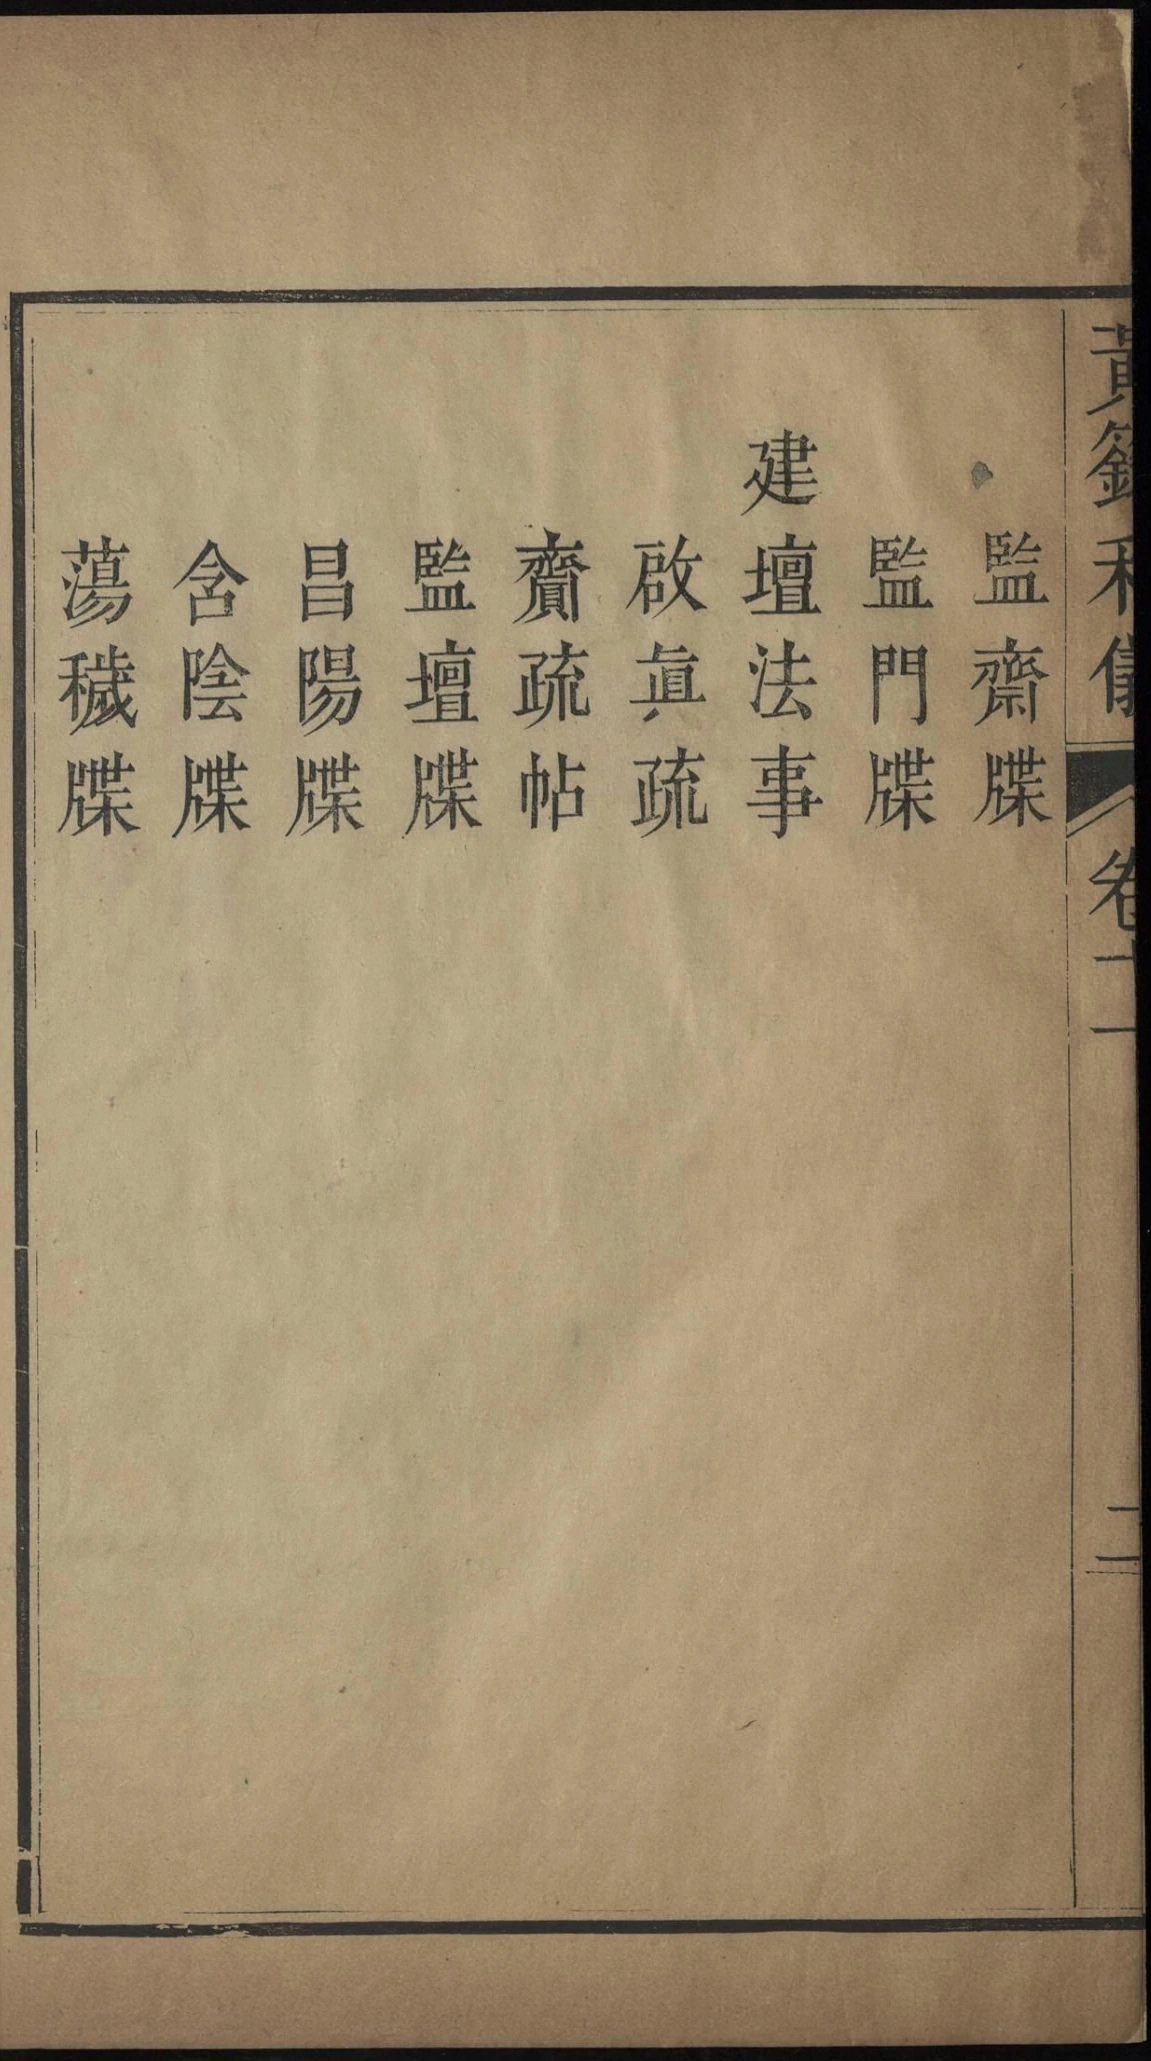 黃籙科儀 卷十一 二
監齋牒
監門牒
建壇法事
啟眞疏
齎疏帖
監壇牒
昌陽牒
含陰牒
蕩穢牒